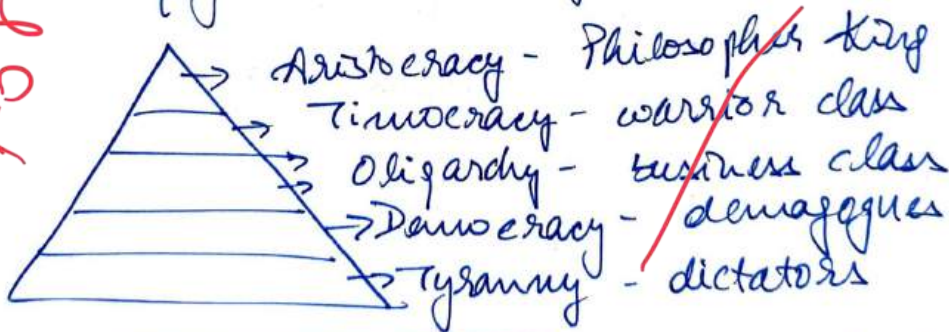 Aristocracy - Philosopher King
Timocracy - warrior class
Oligarchy - business class
Democracy - demagogues
Tyranny - dictators